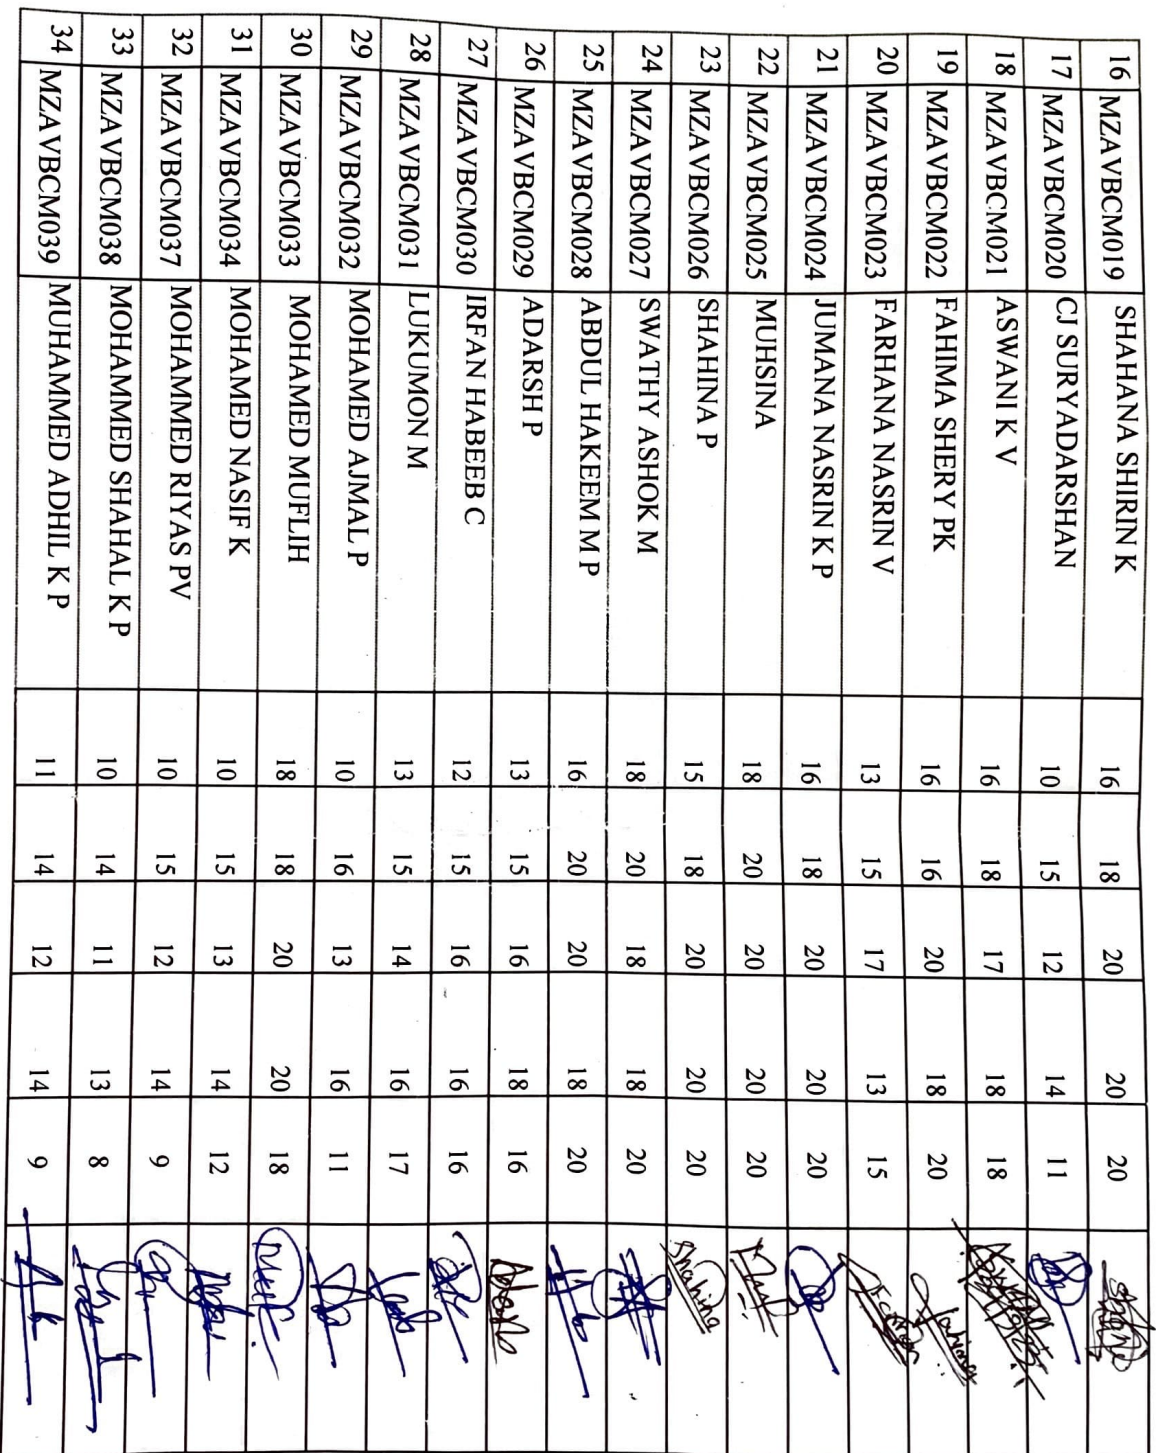 16 MZAVBCM019 SHAHANA SHIRIN K 16 18 20 20 20
17 MZAVBCM020 CJ SURYADARSHAN 10 15 12 14 11
18 MZAVBCM021 ASWANI K V 16 18 17 18 18
19 MZAVBCM022 FAHIMA SHERY PK 16 16 20 18 20
20 MZAVBCM023 FARHANA NASRIN V 13 15 17 13 15
21 MZAVBCM024 JUMANA NASRIN K P 16 18 20 20 20
22 MZAVBCM025 MUHSINA 18 20 20 20 20
23 MZAVBCM026 SHAHINA P 15 18 20 20 20 Shahina
24 MZAVBCM027 SWATHY ASHOK M 18 20 18 18 20
25 MZAVBCM028 ABDUL HAKEEM M P 16 20 20 18 20
26 MZAVBCM029 ADARSH P 13 15 16 18 16
27 MZAVBCM030 IRFAN HABEEB C 12 15 16 16 16
28 MZAVBCM031 LUKUMON M 13 15 14 16 17
29 MZAVBCM032 MOHAMED AJMAL P 10 16 13 16 11
30 MZAVBCM033 MOHAMED MUFLIH 18 18 20 20 18
31 MZAVBCM034 MOHAMED NASIF K 10 15 13 14 12
32 MZAVBCM037 MOHAMMED RIYAS PV 10 15 12 14 9
33 MZAVBCM038 MOHAMMED SHAHAL K P 10 14 11 13 8
34 MZAVBCM039 MUHAMMED ADHIL K P 11 14 12 14 9